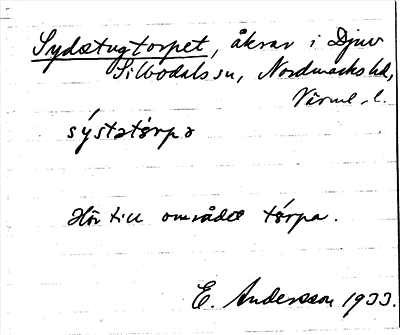 Sydstugtorpet, åkrar i Djuv
Silbodals sn, Nordmarks hd,
Värml. l.
sýstətòrpə
Hör till området tórpa.
E. Andersson 1933.